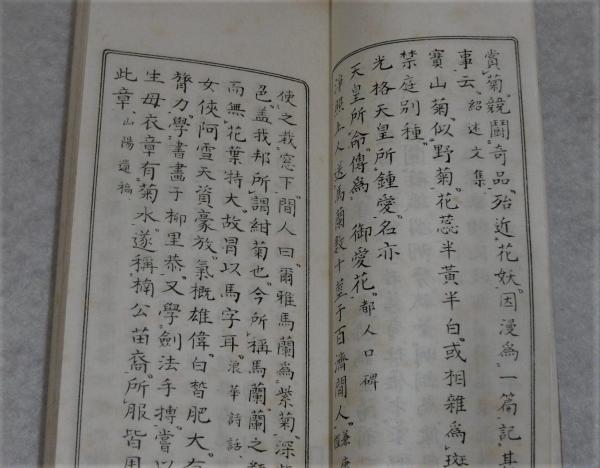 賞菊競鬪奇品殆近花妖因漫爲一篇記其
事云紹述文集
寶山菊似野菊花蕊半黃半白或相雜爲斑
禁庭別種
光格天皇所鍾愛名亦
天皇所命傳爲 御愛花都人口碑
淨照上人送馬蘭數十莖于百濟閒人
使之栽窓下閒人曰爾雅馬蘭爲紫菊深
色蓋我邦所謂紺菊也今所稱馬蘭蘭之類
而無花葉特大故冒以馬字耳浪華詩話
女俠阿雪天資豪放氣概雄偉白晳肥大有
膂力學書畫于柳里恭又學劍法手搏嘗以
生母衣章有菊水遂稱楠公苗裔所服皆用
此章山陽遺稿